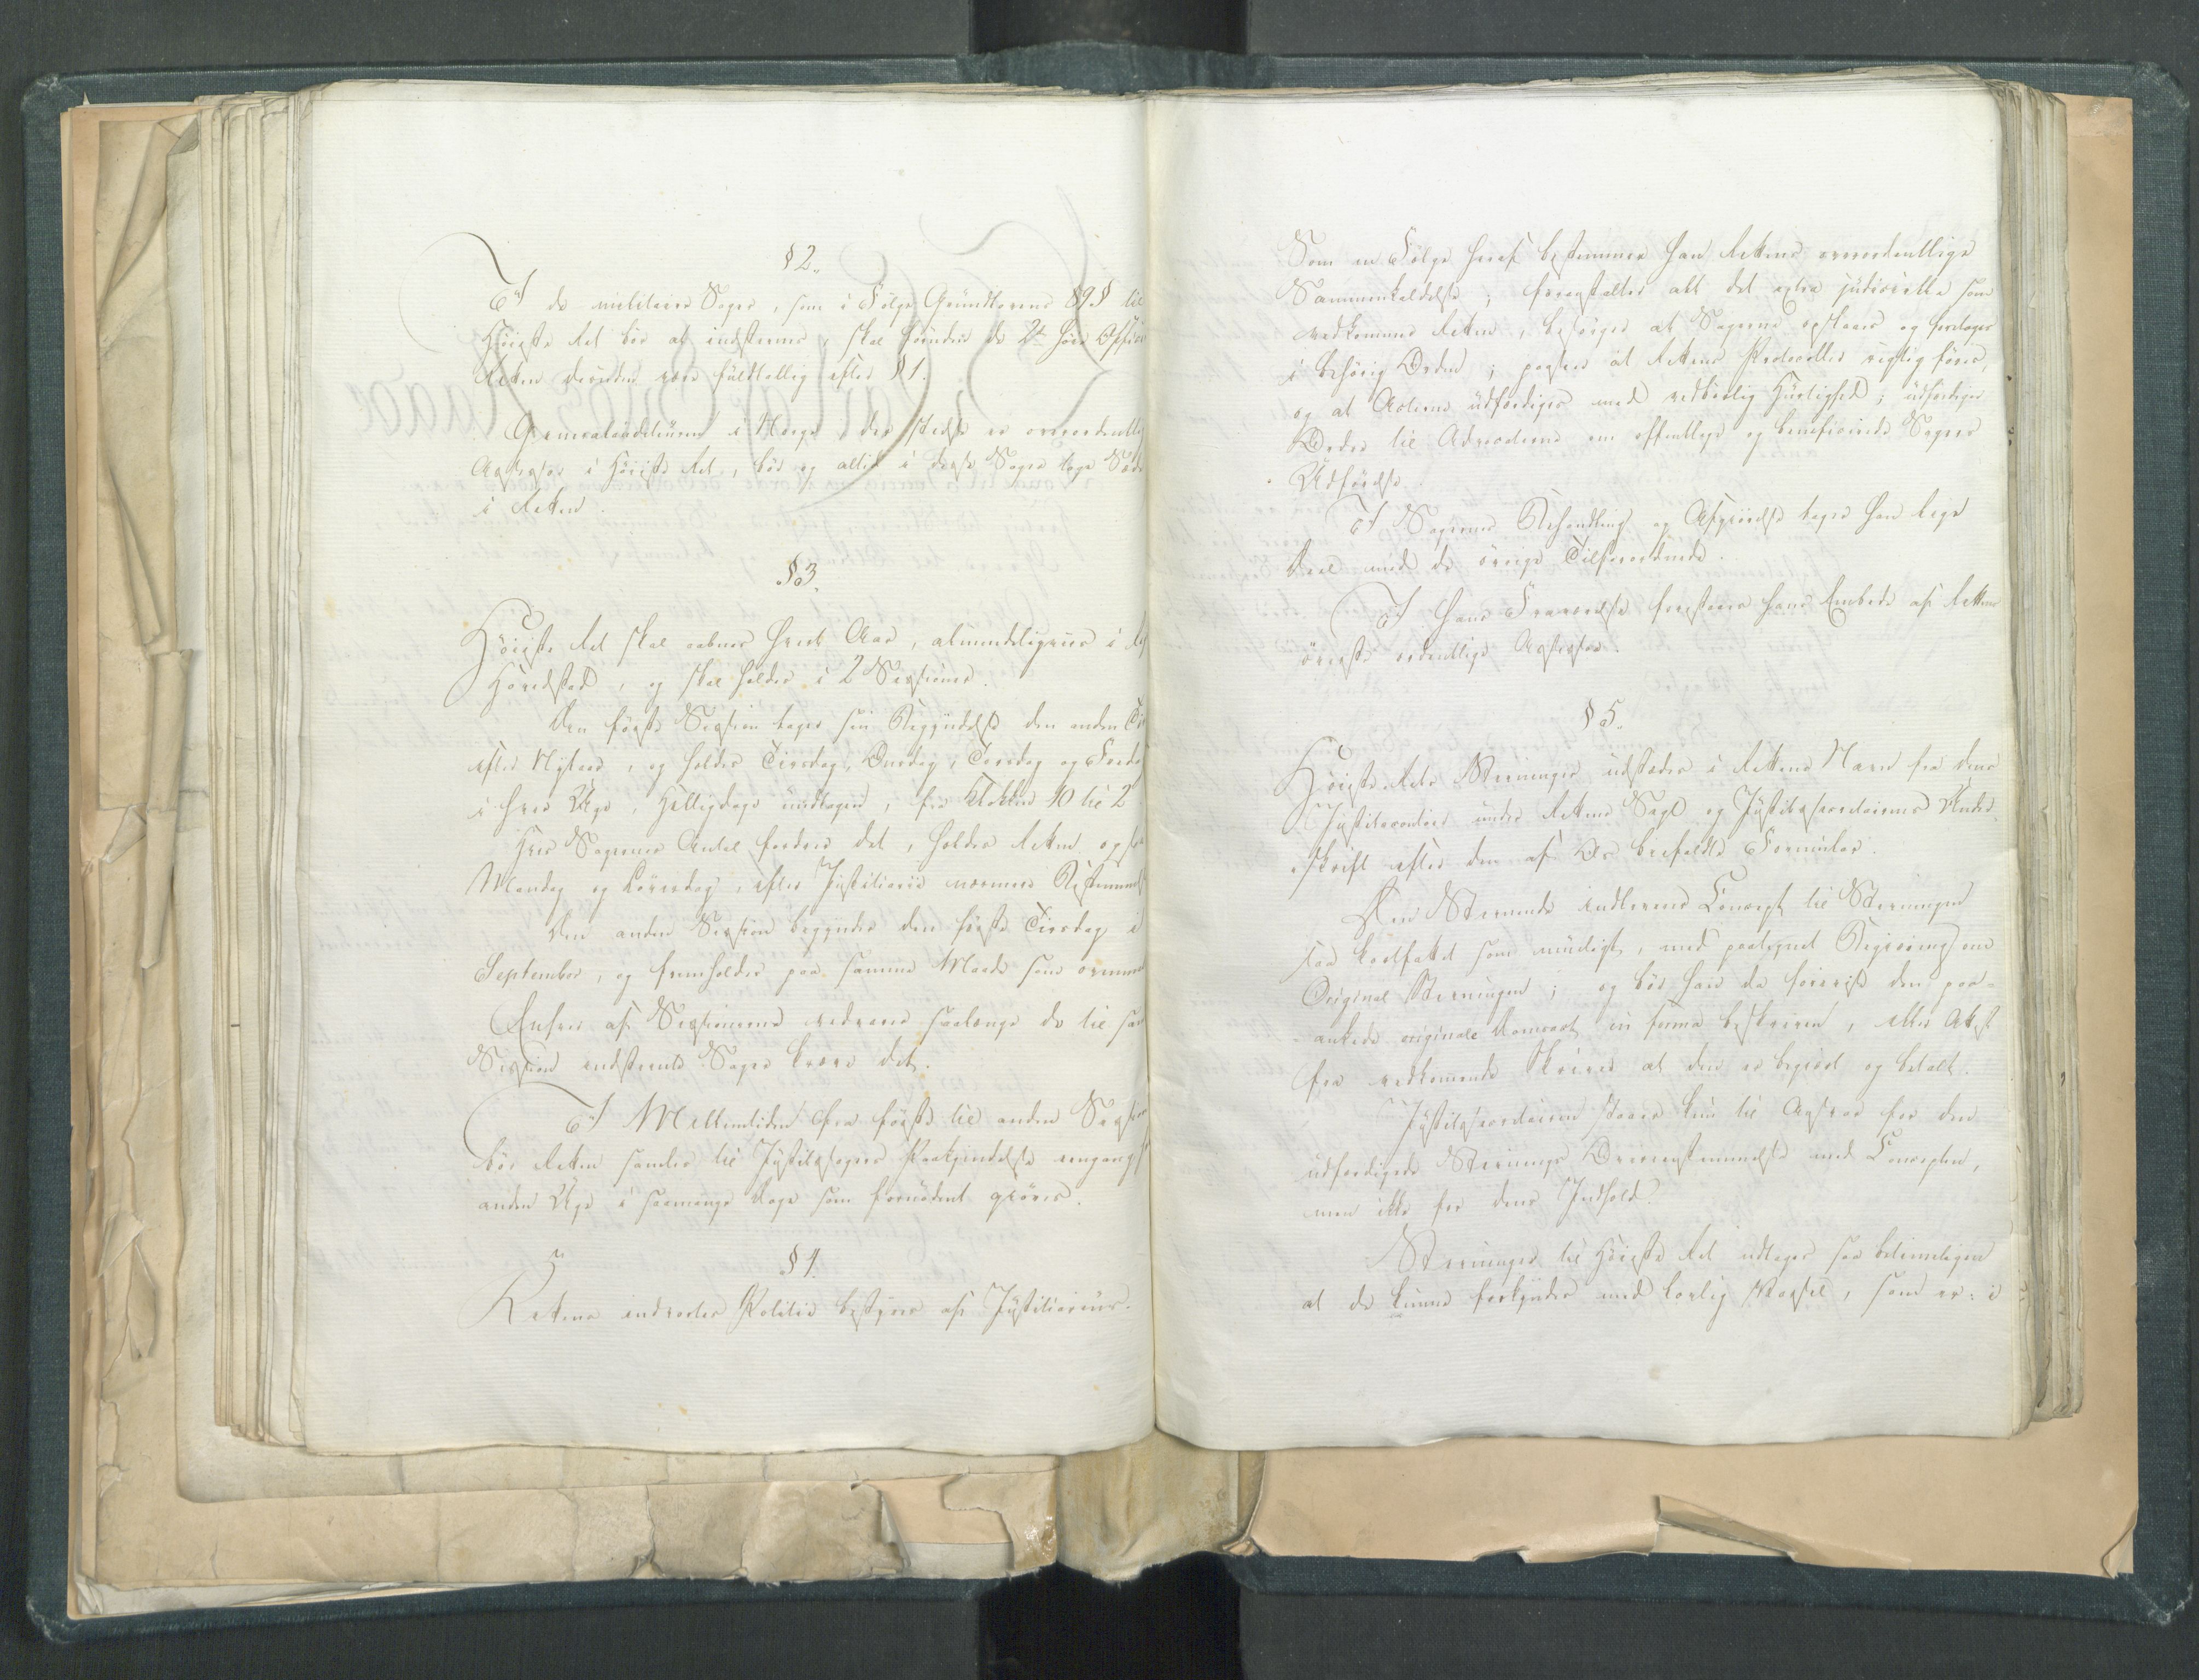 § 2.
I de militaire Sager, som i Følge Grundlovens 89 § til
Høieste Ret bør at indstevnes, skal foruden de 2de høie Officierer
Retten desuden være fuldtallig efter § 1.
Generalauditeuren i Norge, der stedse er overordentlig
Assessor i Høieste Ret, bør og altid i disse Sager tage Sæde
i Retten.
§ 3.
Høieste Ret skal aabnes hvert Aar, almindeligviis i
Hovedstad, og skal holdes i 2 Sessioner.
Den første Session tager sin Begyndelse den anden
efter Nytaar, og holdes Tirsdag, Onsdag, Torsdag og Fredag
i hver Uge, Helligdage undtagen, fra Klokken 10 til 2
Hvis Sagernes Antal fordrer det, holdes Retten og
Mandag og Løverdag, efter Justitiarii nærmere Bestemmelse
Den anden Session begynder den første Tirsdag i
September, og fremholdes paa samme Maade som ovenmeldt
Enhver af Sessionerne vedvarer saalænge de til
Session indstevnte Sager kræve det.
I Mellemtiden fra første til anden Session
bør Retten samles til Justitssagers Paakjendelse engang
anden Uge i saamange Dage som fornødent gjøres.
§ 4.
Rettens indvortes Politie bestyres af Justitiarius.
Som en Følge heraf bestemmer han Rettens overordentlige
Sammenkaldelse; foranstalter alt det extra judicielle som
vedkommer Retten, besørger at Sagerne opslaaes og foretages
i behørig Orden; paaseer at Rettens Protocoller rigtig føres,
og at Acterne udfærdiges med vedbørlig Hurtighed; udfærdiger
Ordre til Advocaterne om offentlige og beneficerede Sagers
Udførelse.
I Sagernes Behandling og Afgiørelse tager han lige
Deel med de øvrige Tilforordnede.
I hans Fraværelse forestaaes hans Embede af Rettens
øverste ordentlige Assessor.
§ 5.
Høieste Rets Stevninger udstædes i Rettens Navn fra dens
Justitscontoir under Rettens Segl og Justitssecretairens Under-
skrift efter den af Os befalede Formular.
Den Stevnende indleverer Concept til Stevningen
saa kortfattet som muligt, med paategnet Begjæring om
Original Stevningen; og bør han da forevise den paa-
ankede originale Domsact in forma beskreven, eller Attest
fra vedkommende Skriver at den er begjært og betalt.
Justitssecretairen staaer kun til Ansvar for den
udfærdigede Stevnings Overeensstemmelse med Concepten,
men ikke for dens Indhold.
Stevninger til Høieste Ret udtages saa betimeligen
at de kunne forkyndes med lovlig Varsel, som er: i